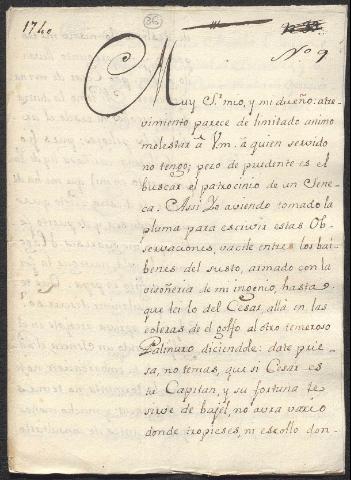 1740
36
Nº 9
Muy S.r mio, y mi dueño: atre-
vimiento parece de limitado animo
molestar â Vm. â quien servido
no tengo; pero de prudente es el
buscar el patrocinio de un Sene-
ca. Assi Yo aviendo tomado la
pluma para escrivir estas Ob-
servaciones, vacilè entre los bai-
benes del susto, armado con la
visoñeria de mi ingenio, hasta
que lei lo del Cesar, allà en las
coleras de el golfo al otro temeroso
Palinuro, diciendole: date prie-
sa, no temas, que si Cesar es
tu Capitan, y su fortuna te
sirve de bajèl, no avra varìo
donde tropieses, ni escollo don-